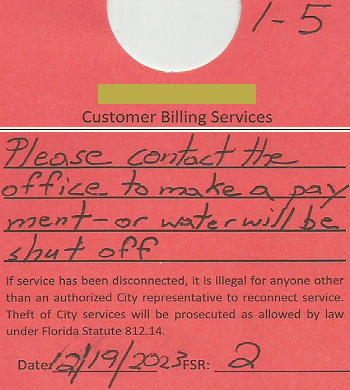 1-5
Customer Billing Services
Please contact the
office to make a pay
ment - or water will be
shut off
If service has been disconnected, it is illegal for anyone other
than an authorized City representative to reconnect service.
Theft of City services will be prosecuted as allowed by law
under Florida Statute 812.14.
Date: 12/19/2023 FSR: 2